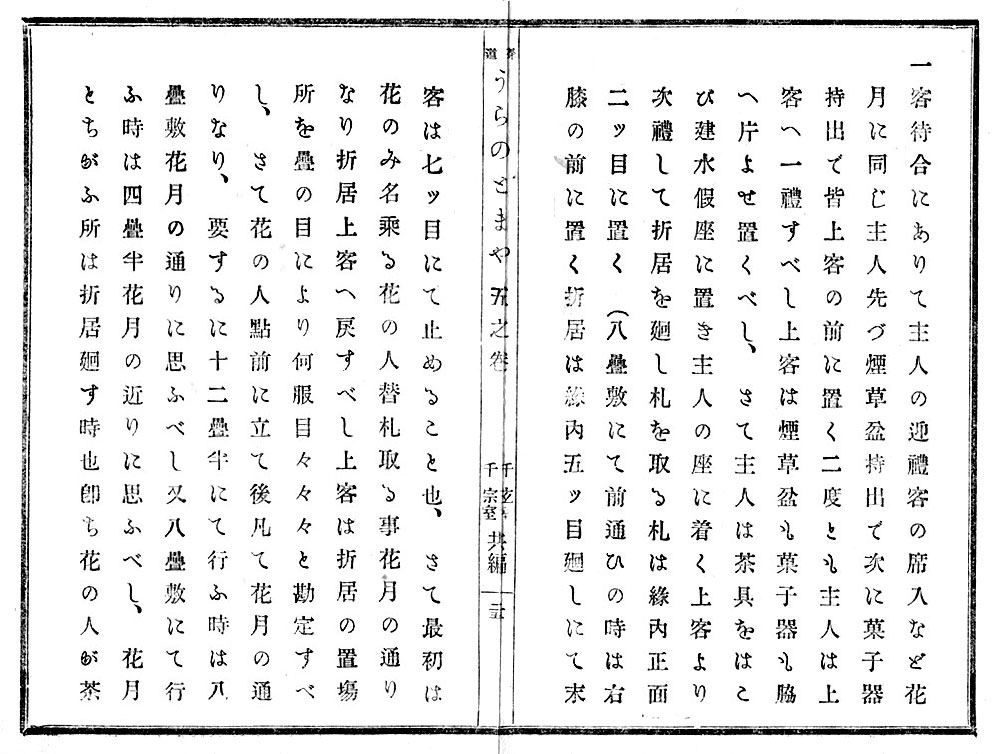 一客待合にありて主人の迎禮客の席入など花
月に同じ主人先づ煙草盆持出で次に菓子器
持出で皆上客の前に置く二度とも主人は上
客へ一禮すべし上客は煙草盆も菓子器も脇
へ片よせ置くべし、さて主人は茶具をはこ
び建水假座に置き主人の座に着く上客より
次禮して折居を廻し札を取る札は緣內正面
二ッ目に置く(八疊敷にて前通ひの時は右
膝の前に置く折居は緣內五ッ目廻しにて末
茶道
うらのとまや 五之卷
千宗室 共編
客は七ッ目にて止めること也、さて最初は
花のみ名乘る花の人替札取る事花月の通り
なり折居上客へ戾すべし上客は折居の置塲
所を疊の目により何服目々々々と勘定すべ
し、さて花の人點前に立て後凡て花月の通
りなり、要するに十二疊半にて行ふ時は八
疊敷花月の通りに思ふべし又八疊敷にて行
ふ時は四疊半花月の近りに思ふべし、花月
とちがふ所は折居廻す時也卽ち花の人が茶